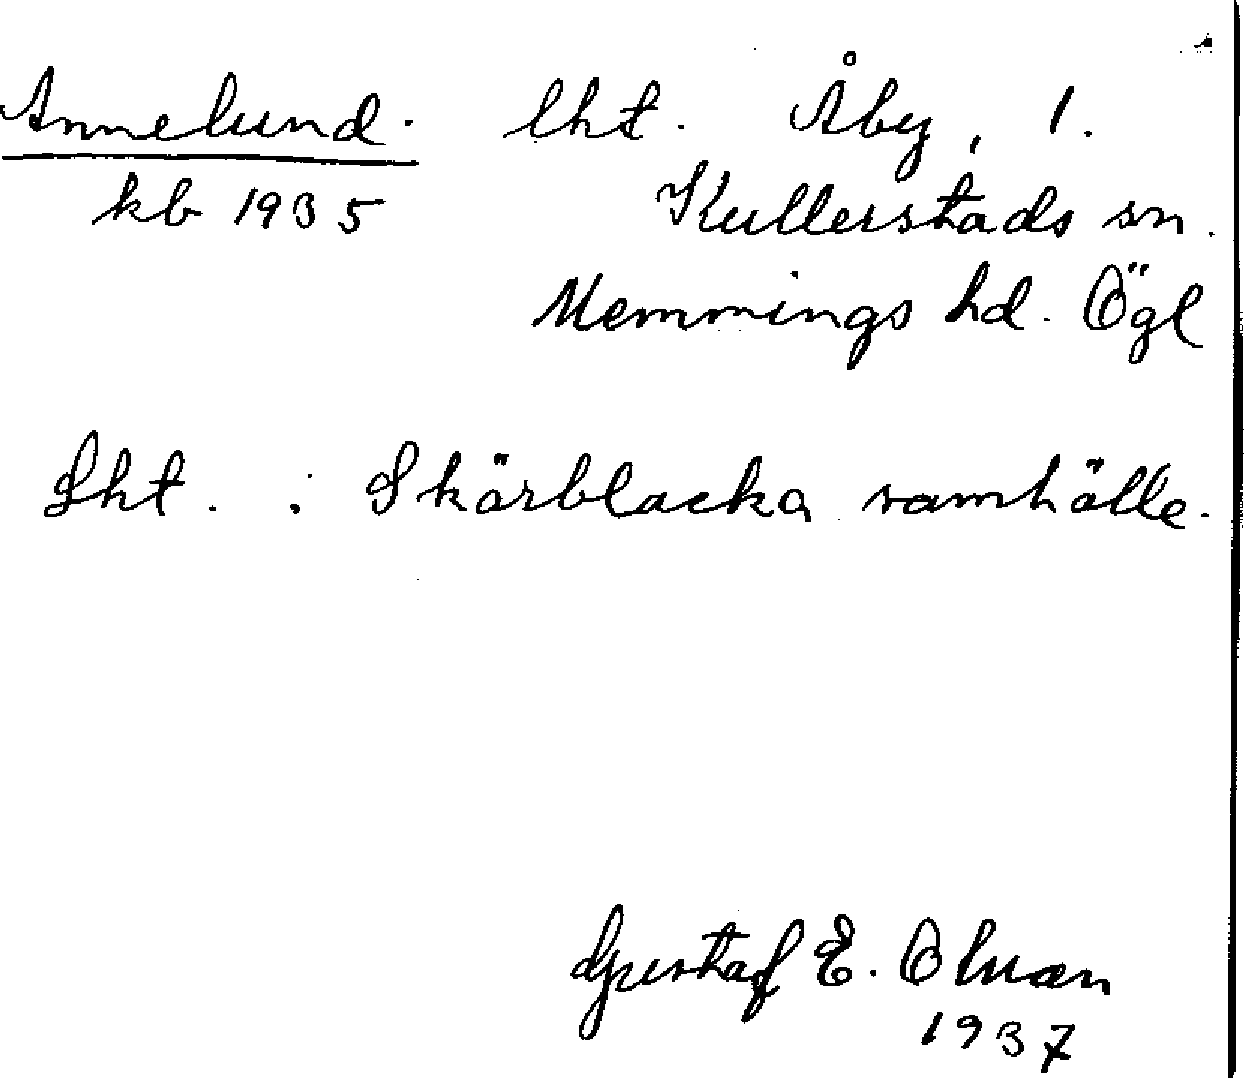 Annelund. lht. Åby, 1.
kb 1935 Kullerstads sn.
Memmings hd. Ögl
Lht. : Skärblacka samhälle.
Gustaf E. Olman
1937